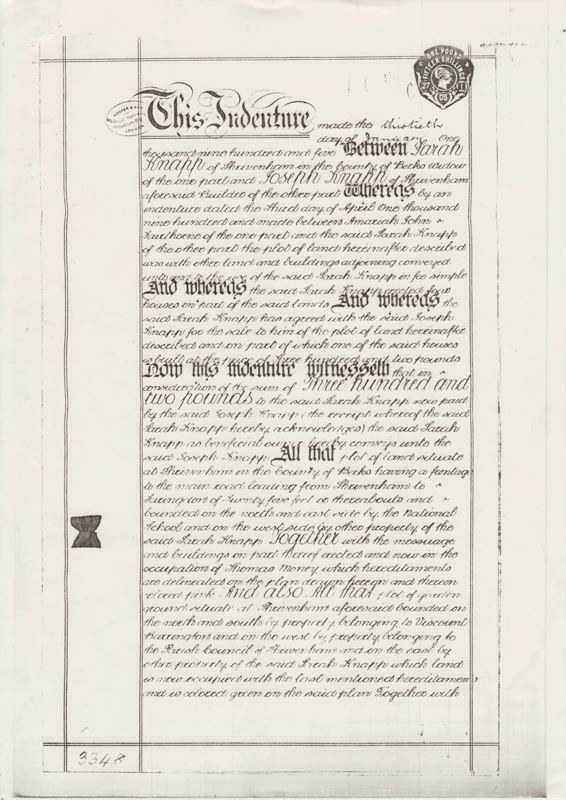 ONE POUND
FIFTEEN SHILLINGS
This Indenture made this thirtieth
day of January One
thousand nine hundred and five Between Sarah
Knapp of Shrivenham in the County of Berks widow
of the one part and Joseph Knapp of Shrivenham
aforesaid Builder of the other part Whereas by an
indenture dated the third day of April One thousand
nine hundred and made between Amariah John
of the one part and the said Sarah Knapp
of the other part the plot of land hereinafter described
was with other land and buildings adjoining conveyed
unto and to the use of the said Sarah Knapp in fee simple
And whereas the said Sarah Knapp erected four
houses on part of the said lands And whereas the
said Sarah Knapp has agreed with the said Joseph
Knapp for the sale to him of the plot of land hereinafter
described and on part of which one of the said houses
is built at the price of three hundred and two pounds
Now this indenture witnesseth that in
consideration of the sum of Three hundred and
two pounds to the said Sarah Knapp now paid
by the said Joseph Knapp (the receipt whereof the said
Sarah Knapp hereby acknowledges) the said Sarah
Knapp as beneficial owner hereby conveys unto the
said Joseph Knapp All that plot of land situate
at Shrivenham in the County of Berks having a frontage
to the main road leading from Shrivenham to
Faringdon of twenty five feet or thereabouts and
bounded on the north and east side by the National
School and on the west side by other property of the
said Sarah Knapp Together with the messuage
and buildings on part thereof erected and now in the
occupation of Thomas Money which hereditaments
are delineated on the plan drawn hereon and thereon
colored pink And also All that plot of garden
ground situate at Shrivenham aforesaid bounded on
the north and south by property belonging to Viscount
Barrington and on the west by property belonging to
the Parish Council of Shrivenham and on the east by
other property of the said Sarah Knapp which land
is now occupied with the last mentioned hereditaments
and is colored green on the said plan Together with
3348